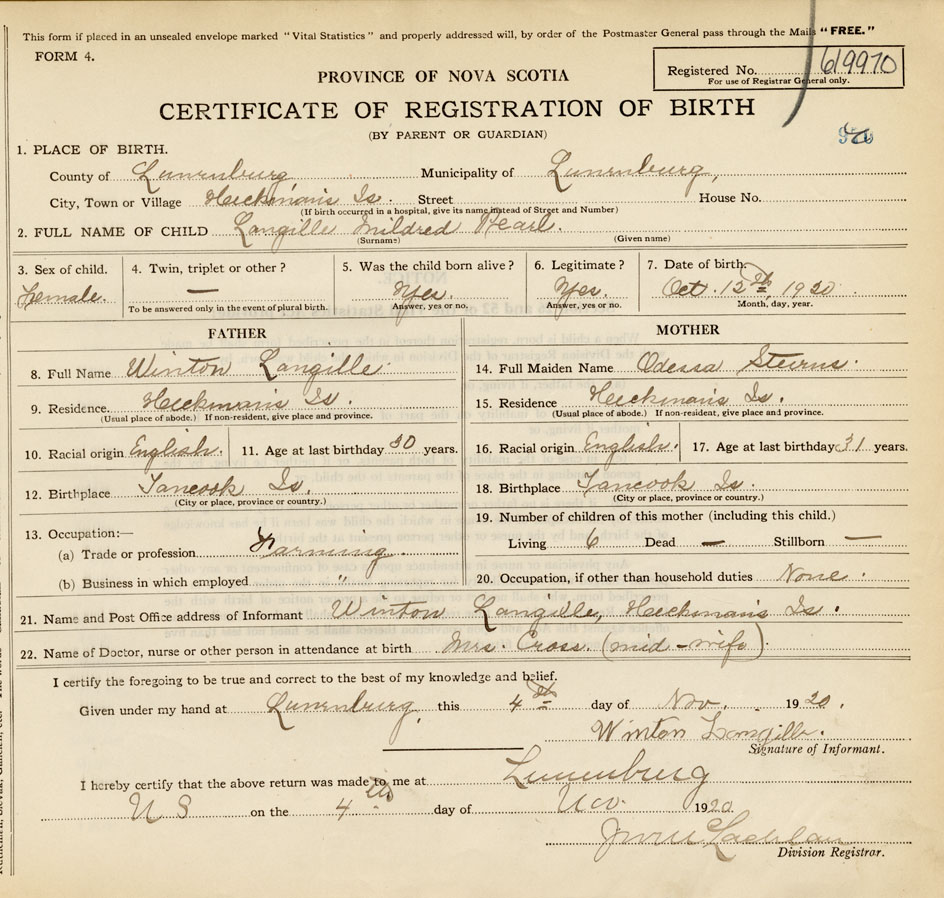 This form if placed in an unsealed envelope marked "Vital Statistics" and properly addressed will, by order of the Postmaster General pass through the Mails "FREE."
FORM 4.
Registered No. 619970
For use of Registrar General only.
PROVINCE OF NOVA SCOTIA
CERTIFICATE OF REGISTRATION OF BIRTH
(BY PARENT OR GUARDIAN)
1. PLACE OF BIRTH.
County of Lunenburg, Municipality of Lunenburg,
City, Town or Village Heckman's Is. Street House No.
(If birth occurred in a hospital, give its name instead of Street and Number)
2. FULL NAME OF CHILD Langille Mildred Pearl.
(Surname) (Given name)
3. Sex of child. 4. Twin, triplet or other? 5. Was the child born alive? 6. Legitimate? 7. Date of birth.
Female. — Yes. Yes. Oct. 12th, 1920
To be answered only in the event of plural birth. Answer, yes or no. Answer, yes or no. Month, day, year.
FATHER
8. Full Name Winton Langille.
9. Residence. Heckman's Is.
(Usual place of abode.) If non-resident, give place and province.
10. Racial origin English. 11. Age at last birthday 30 years.
12. Birthplace Tancook Is.
(City or place, province or country.)
13. Occupation:—
(a) Trade or profession Farming.
(b) Business in which employed "
MOTHER
14. Full Maiden Name Odessa Steirns.
15. Residence Heckman's Is.
(Usual place of abode.) If non-resident, give place and province.
16. Racial origin English. 17. Age at last birthday 31 years.
18. Birthplace Tancook Is.
(City or place, province or country.)
19. Number of children of this mother (including this child.)
Living 6 Dead — Stillborn —
20. Occupation, if other than household duties None.
21. Name and Post Office address of Informant Winton Langille, Heckman's Is.
22. Name of Doctor, nurse or other person in attendance at birth Mrs. Cross. (mid-wife).
I certify the foregoing to be true and correct to the best of my knowledge and belief.
Given under my hand at Lunenburg, this 4th day of Nov. 1920.
Winton Langille.
Signature of Informant.
I hereby certify that the above return was made to me at Lunenburg
N S on the 4th day of Nov. 1920
Division Registrar.